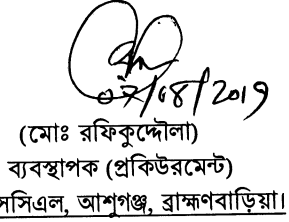 ০৭/০৪/২০১৭
(মোঃ রফিকুদ্দৌলা)
ব্যবস্থাপক (প্রকিউরমেন্ট)
সসিএল, আশুগঞ্জ, ব্রাহ্মণবাড়িয়া।